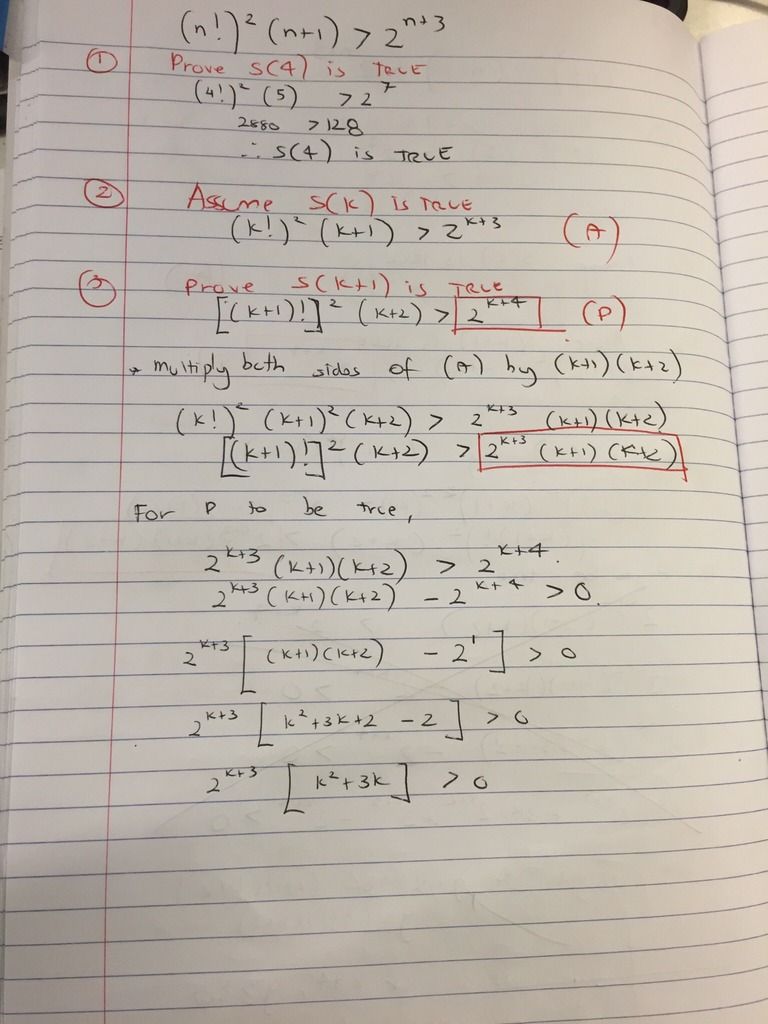 (n!)² (n+1) > 2ⁿ⁺³
① Prove S(4) is TRUE
(4!)² (5) > 2⁷
2880 > 128
∴ S(4) is TRUE
② Assume S(K) is TRUE
(k!)² (k+1) > 2ᵏ⁺³ (A)
③ Prove S(k+1) is TRUE
[(k+1)!]² (k+2) > 2ᵏ⁺⁴ (P)
* multiply both sides of (A) by (k+1)(k+2)
(k!)² (k+1)² (k+2) > 2ᵏ⁺³ (k+1)(k+2)
[(k+1)!]² (k+2) > 2ᵏ⁺³ (k+1) (k+2)
For P to be true,
2ᵏ⁺³ (k+1)(k+2) > 2ᵏ⁺⁴.
2ᵏ⁺³ (k+1)(k+2) - 2ᵏ⁺⁴ > 0.
2ᵏ⁺³ [(k+1)(k+2) - 2¹] > 0
2ᵏ⁺³ [k²+3k+2 -2] > 0
2ᵏ⁺³ [k²+3k] > 0